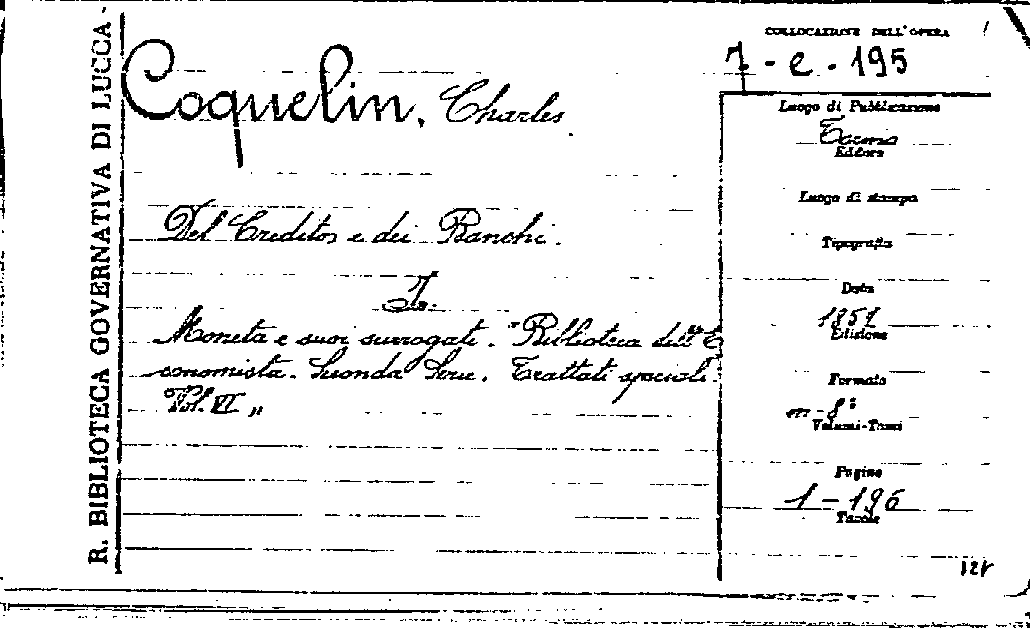 R. BIBLIOTECA GOVERNATIVA DI LUCCA.
COLLOCAZIONE DELL'OPERA
7-e-195
Coquelin, Charles.
Del Credito e dei Banchi.
I.
Moneta e suoi surrogati. "Biblioteca dell'E
conomista. Seconda Serie. Trattati speciali.
Vol. VI"
Luogo di Pubblicazione
Torino
Editore
Luogo di stampa
Tipografia
Data
Edizione
Formato
m-8°
Volumi-Tomi
Pagine
1-196
Tavole